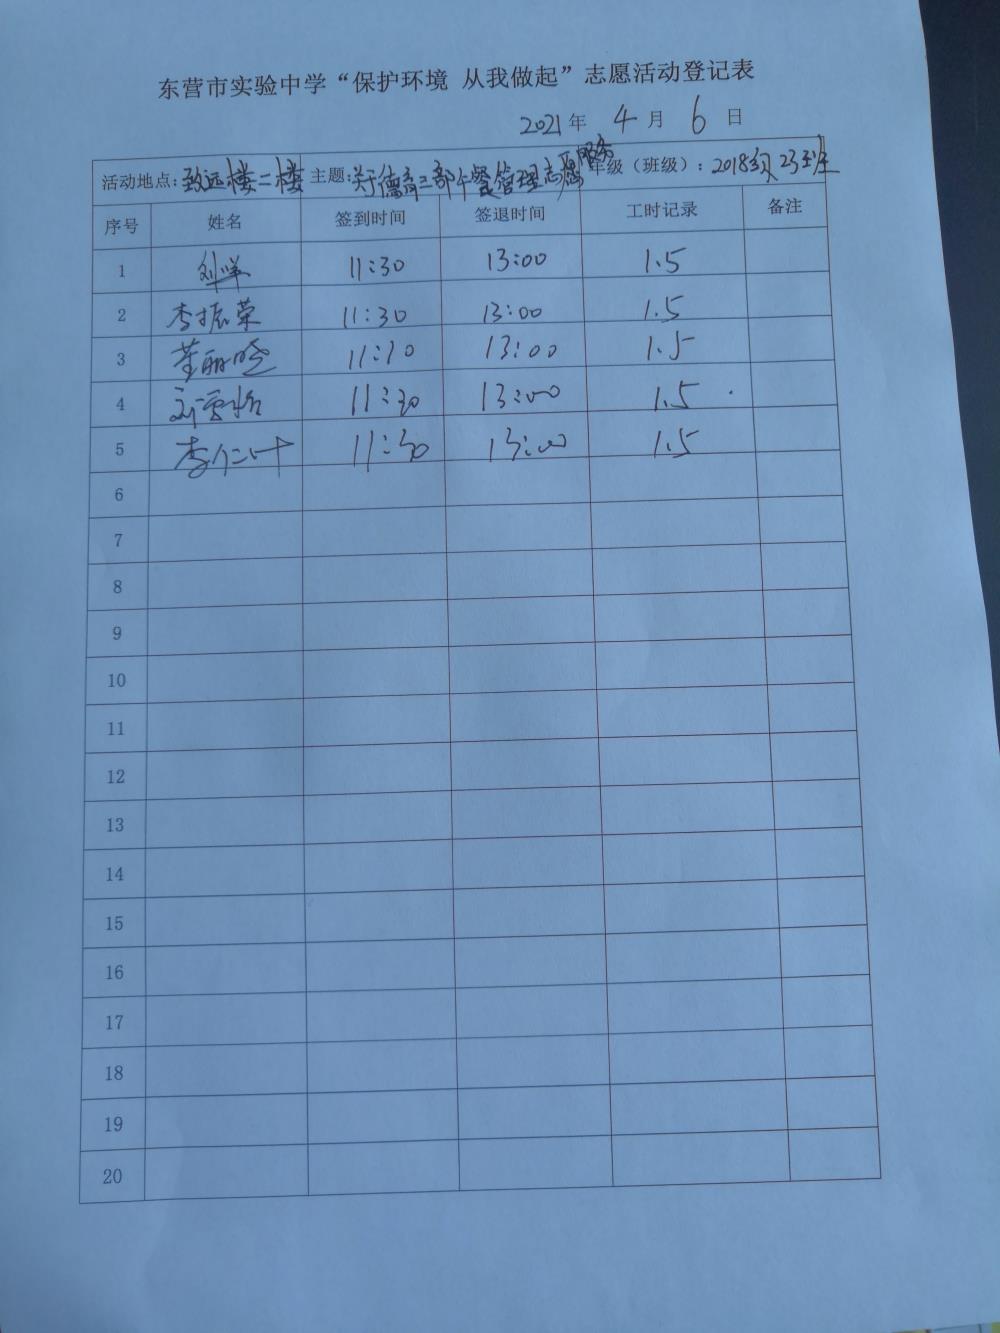 东营市实验中学“保护环境 从我做起”志愿活动登记表
2021年 4月 6日
活动地点:致远楼二楼 主题:关于德育三部午餐管理志愿服务 年级（班级）：2018级23班
序号 姓名 签到时间 签退时间 工时记录 备注
1 刘洋 11:30 13:00 1.5
2 李振荣 11:30 13:00 1.5
3 董丽晓 11:30 13:00 1.5
4 11:30 13:00 1.5
5 李仁叶 11:30 13:00 1.5
6
7
8
9
10
11
12
13
14
15
16
17
18
19
20